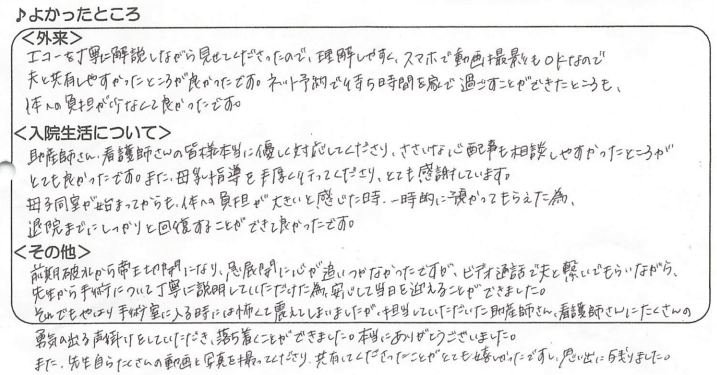 ♪よかったところ
<外来>
エコーを丁寧に解説しながら見せてくださったので、理解しやすく、スマホで動画撮影もOKなので
夫と共有しやすかったところが良かったです。ネット予約で待ち時間を家で過ごすことができたところも、
体への負担が少なくて良かったです。
<入院生活について>
助産師さん、看護師さんの皆様本当に優しく対応してくださり、ささいな心配事も相談しやすかったところが
とても良かったです。また、母乳指導を手厚く行ってくださり、とても感謝しています。
母子同室が始まってからも、体への負担が大きいと感じた時、一時的に預かってもらえた為、
退院までにしっかりと回復することができて良かったです。
<その他>
前期破水から帝王切開になり、急展開に心が追いつかなかったですが、ビデオ通話で夫と繋いでもらいながら、
先生から手術について丁寧に説明していただけた為、安心して当日を迎えることができました。
それでもやはり手術室に入る時には怖くて震えてしまいましたが、担当していただいた助産師さん、看護師さんにたくさんの
勇気の出る声掛けをしていただき、落ち着くことができました。本当にありがとうございました。
また、先生自らたくさんの動画と写真を撮ってくださり、共有してくださったことがとても嬉しかったですし、思い出に残りました。